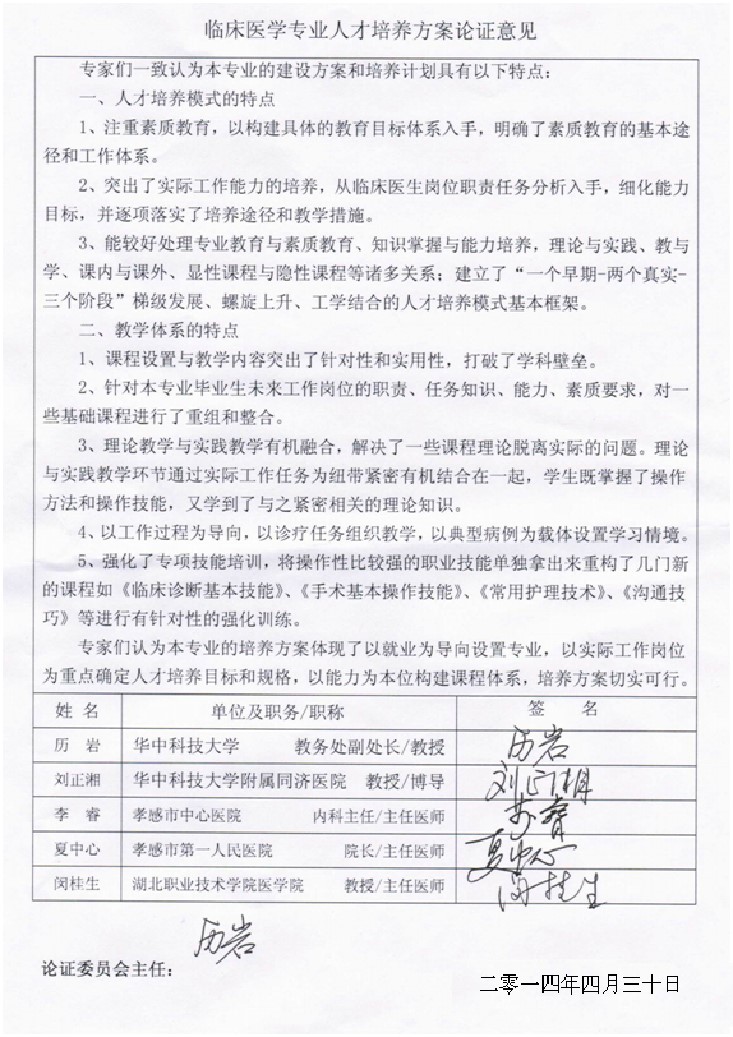 临床医学专业人才培养方案论证意见
专家们一致认为本专业的建设方案和培养计划具有以下特点：
一、人才培养模式的特点
1、注重素质教育，以构建具体的教育目标体系入手，明确了素质教育的基本途
径和工作体系。
2、突出了实际工作能力的培养，从临床医生岗位职责任务分析入手，细化能力
目标，并逐项落实了培养途径和教学措施。
3、能较好处理专业教育与素质教育、知识掌握与能力培养，理论与实践、教与
学、课内与课外、显性课程与隐性课程等诸多关系；建立了“一个早期-两个真实-
三个阶段”梯级发展、螺旋上升、工学结合的人才培养模式基本框架。
二、教学体系的特点
1、课程设置与教学内容突出了针对性和实用性，打破了学科壁垒。
2、针对本专业毕业生未来工作岗位的职责、任务知识、能力、素质要求，对一
些基础课程进行了重组和整合。
3、理论教学与实践教学有机融合，解决了一些课程理论脱离实际的问题。理论
与实践教学环节通过实际工作任务为纽带紧密有机结合在一起，学生既掌握了操作
方法和操作技能，又学到了与之紧密相关的理论知识。
4、以工作过程为导向，以诊疗任务组织教学，以典型病例为载体设置学习情境。
5、强化了专项技能培训，将操作性比较强的职业技能单独拿出来重构了几门新
的课程如《临床诊断基本技能》、《手术基本操作技能》、《常用护理技术》、《沟通技
巧》等进行有针对性的强化训练。
专家们认为本专业的培养方案体现了以就业为导向设置专业，以实际工作岗位
为重点确定人才培养目标和规格，以能力为本位构建课程体系，培养方案切实可行。
姓 名 单位及职务/职称 签 名
历 岩 华中科技大学 教务处副处长/教授 历岩
刘正湘 华中科技大学附属同济医院 教授/博导 刘正湘
李 睿 孝感市中心医院 内科主任/主任医师 李睿
夏中心 孝感市第一人民医院 院长/主任医师 夏中心
闵桂生 湖北职业技术学院医学院 教授/主任医师 闵桂生
历岩
论证委员会主任：
二零一四年四月三十日